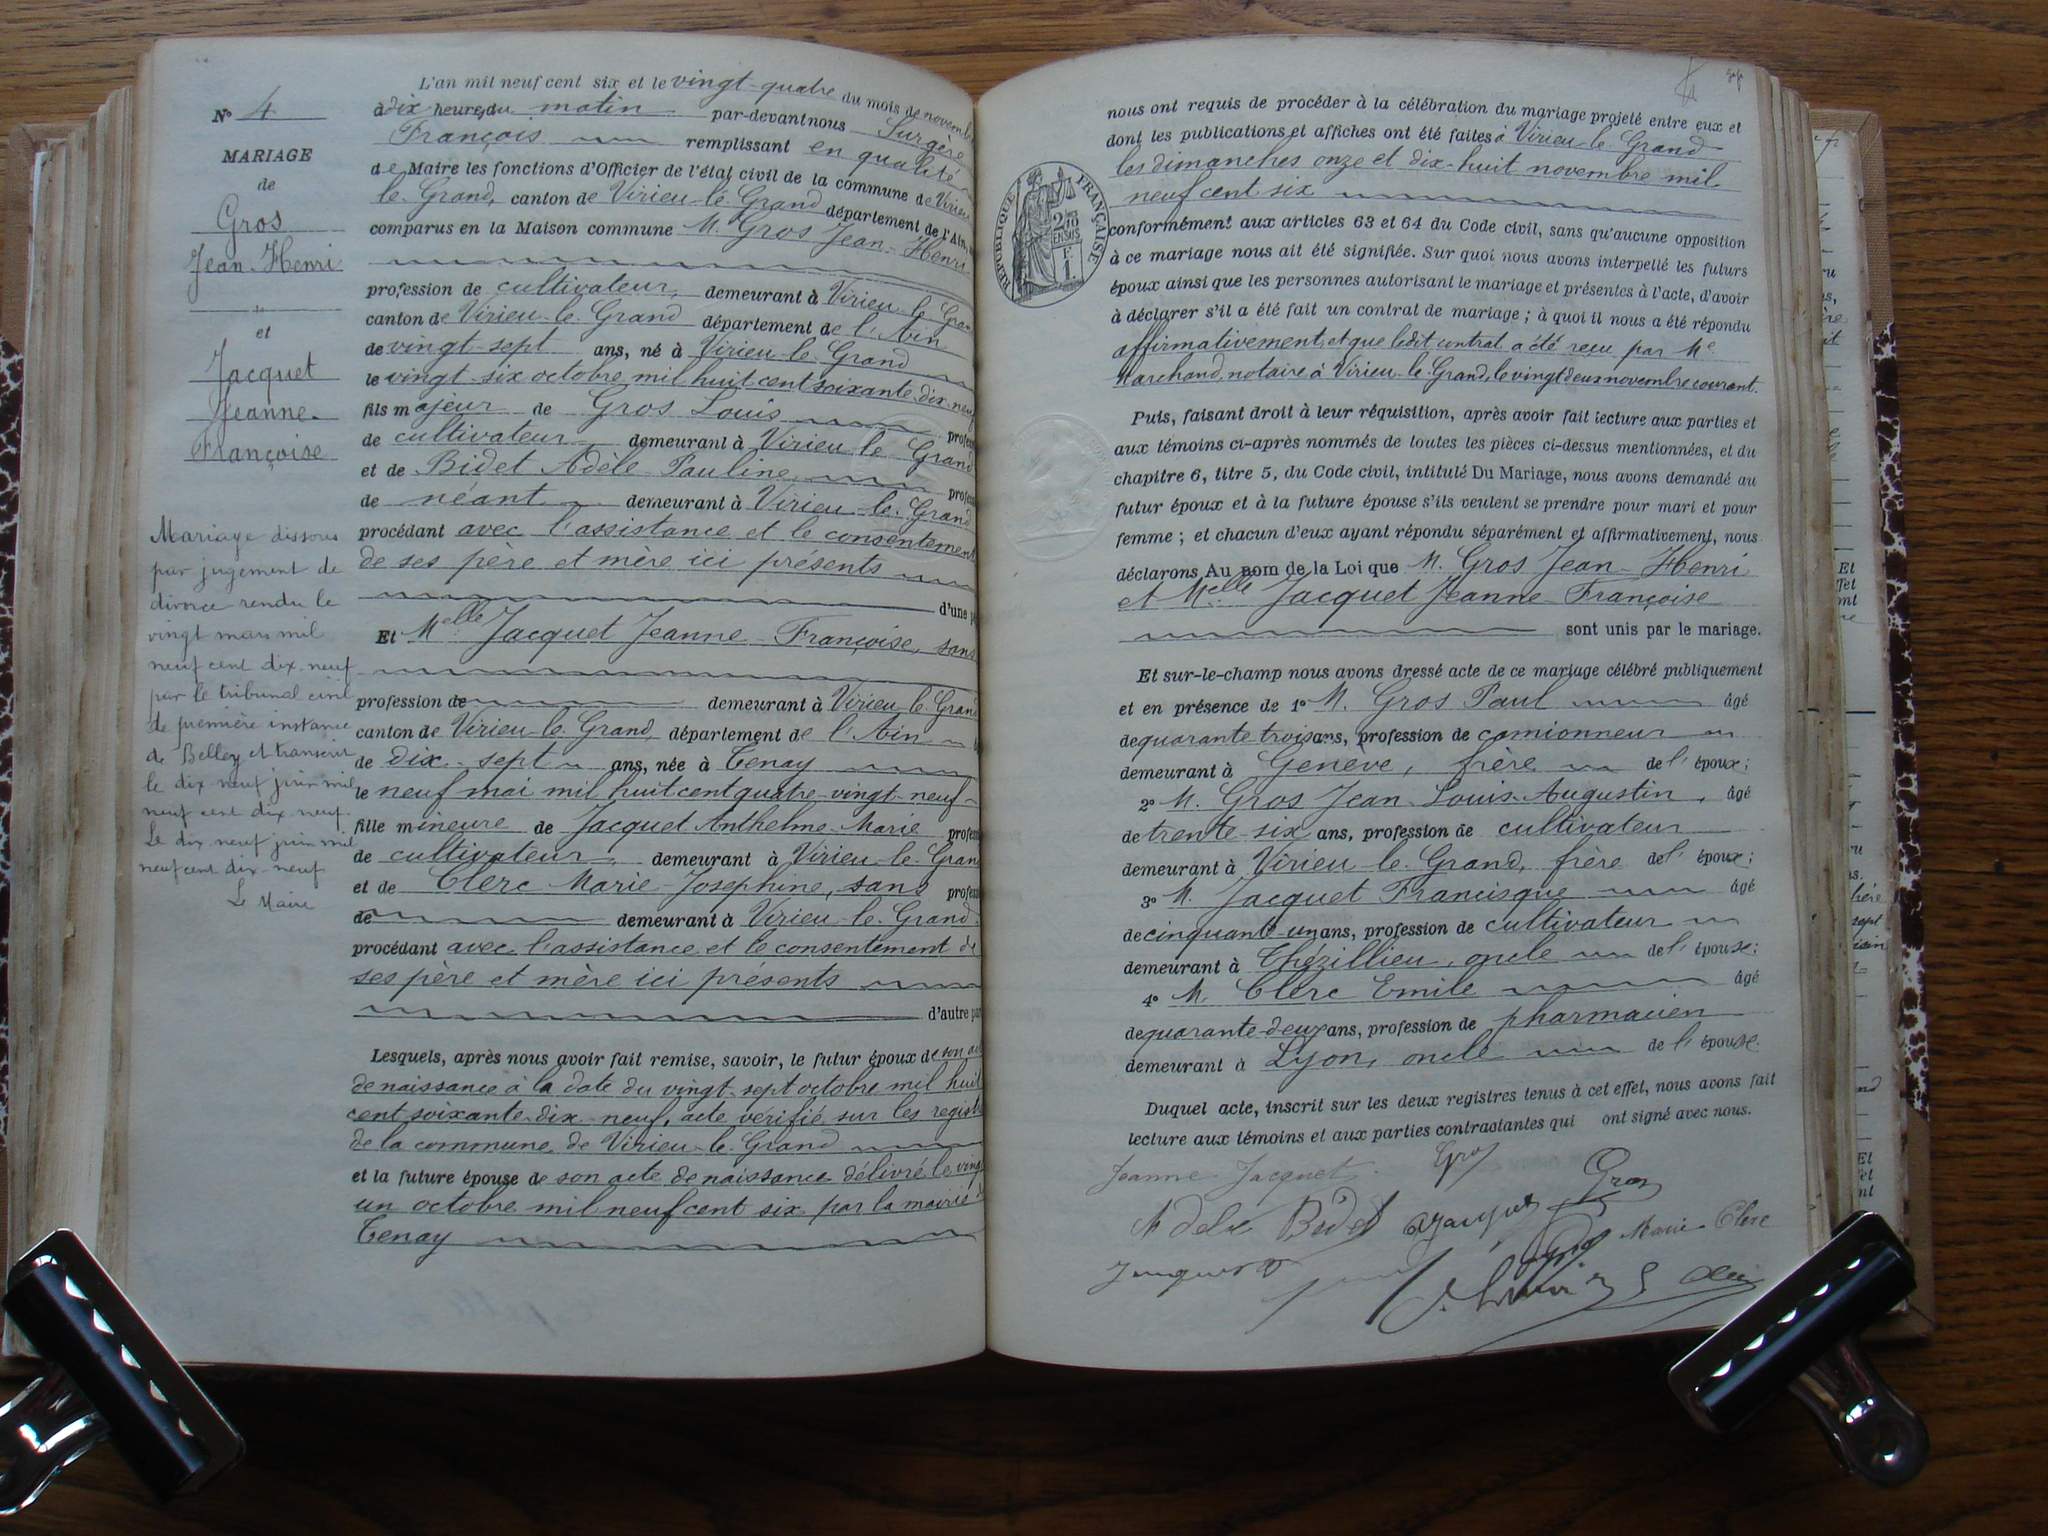 N° 4
MARIAGE
de
Gros
Jean-Henri
et
Jacquet
Jeanne-
Françoise
Mariage dissous
par jugement de
divorce rendu le
vingt mars mil
neuf cent dix-neuf
par le tribunal civil
de première instance
de Belley et transcrit
le dix neuf juin mil
neuf cent dix-neuf.
Le dix neuf juin mil
neuf cent dix-neuf
Le Maire
L'an mil neuf cent six et le vingt-quatre du mois de novembre
à dix heures du matin par-devant nous Surgère
François remplissant en qualité
de Maire les fonctions d'Officier de l'état civil de la commune de Virieu
le-Grand, canton de Virieu-le-Grand département de l'Ain,
comparus en la Maison commune M. Gros Jean-Henri
profession de cultivateur, demeurant à Virieu-le-Gran
canton de Virieu-le-Grand département de l'Ain
de vingt-sept ans, né à Virieu-le-Grand
le vingt-six octobre mil huit cent soixante-dix-neuf
fils majeur de Gros Louis profes
de cultivateur, demeurant à Virieu-le-Grand
et de Bidet Adèle-Pauline profes
de néant demeurant à Virieu-le-Grand
procédant avec l'assistance et le consentement
de ses père et mère ici présents
d'une p
Et Melle Jacquet Jeanne-Françoise, sans
profession de demeurant à Virieu-le-Grand
canton de Virieu-le-Grand, département de l'Ain
de dix-sept ans, née à Tenay
le neuf mai mil huit cent quatre-vingt-neuf
fille mineure de Jacquet Anthelme-Marie profes
de cultivateur, demeurant à Virieu-le-Grand
et de Clerc Marie-Josephine, sans profes
de demeurant à Virieu-le-Grand
procédant avec l'assistance et le consentement de
ses père et mère ici présents
d'autre par
Lesquels, après nous avoir fait remise, savoir, le futur époux de son acte
de naissance à la date du vingt-sept octobre mil huit
cent soixante-dix-neuf, acte vérifié sur les registres
de la commune de Virieu-le-Grand
et la future épouse de son acte de naissance délivré le vingt
un octobre mil neuf cent six par la mairie de
Tenay
nous ont requis de procéder à la célébration du mariage projeté entre eux et
dont les publications et affiches ont été faites à Virieu-le-Grand
les dimanches onze et dix-huit novembre mil
neuf cent six
RÉPUBLIQUE FRANÇAISE
2/10 EN SUS
F.
1.
conformément aux articles 63 et 64 du Code civil, sans qu'aucune opposition
à ce mariage nous ait été signifiée. Sur quoi nous avons interpellé les futurs
époux ainsi que les personnes autorisant le mariage et présentes à l'acte, d'avoir
à déclarer s'il a été fait un contrat de mariage ; à quoi il nous a été répondu
affirmativement, et que ledit contrat a été reçu par Me
Marchand, notaire à Virieu-le-Grand, le vingt deux novembre courant.
Puis, faisant droit à leur réquisition, après avoir fait lecture aux parties et
aux témoins ci-après nommés de toutes les pièces ci-dessus mentionnées, et du
chapitre 6, titre 5, du Code civil, intitulé Du Mariage, nous avons demandé au
futur époux et à la future épouse s'ils veulent se prendre pour mari et pour
femme ; et chacun d'eux ayant répondu séparément et affirmativement, nous
déclarons Au nom de la Loi que M. Gros Jean-Henri
et Melle Jacquet Jeanne-Françoise
sont unis par le mariage.
Et sur-le-champ nous avons dressé acte de ce mariage célébré publiquement
et en présence de 1° M. Gros Paul âgé
de quarante-trois ans, profession de camionneur
demeurant à Genève, frère de l'époux ;
2° M. Gros Jean-Louis-Augustin, âgé
de trente-six ans, profession de cultivateur
demeurant à Virieu-le-Grand, frère de l'époux ;
3° M. Jacquet Francisque âgé
de cinquante-un ans, profession de cultivateur
demeurant à Thézillieu, oncle de l'épouse ;
4° M. Clerc Emile âgé
de quarante-deux ans, profession de pharmacien
demeurant à Lyon, oncle de l'épouse.
Duquel acte, inscrit sur les deux registres tenus à cet effet, nous avons fait
lecture aux témoins et aux parties contractantes qui ont signé avec nous.
Jeanne Jacquet. Gros
Gros
Adèle Bidet Jacquet Marie Clerc
Jacquet